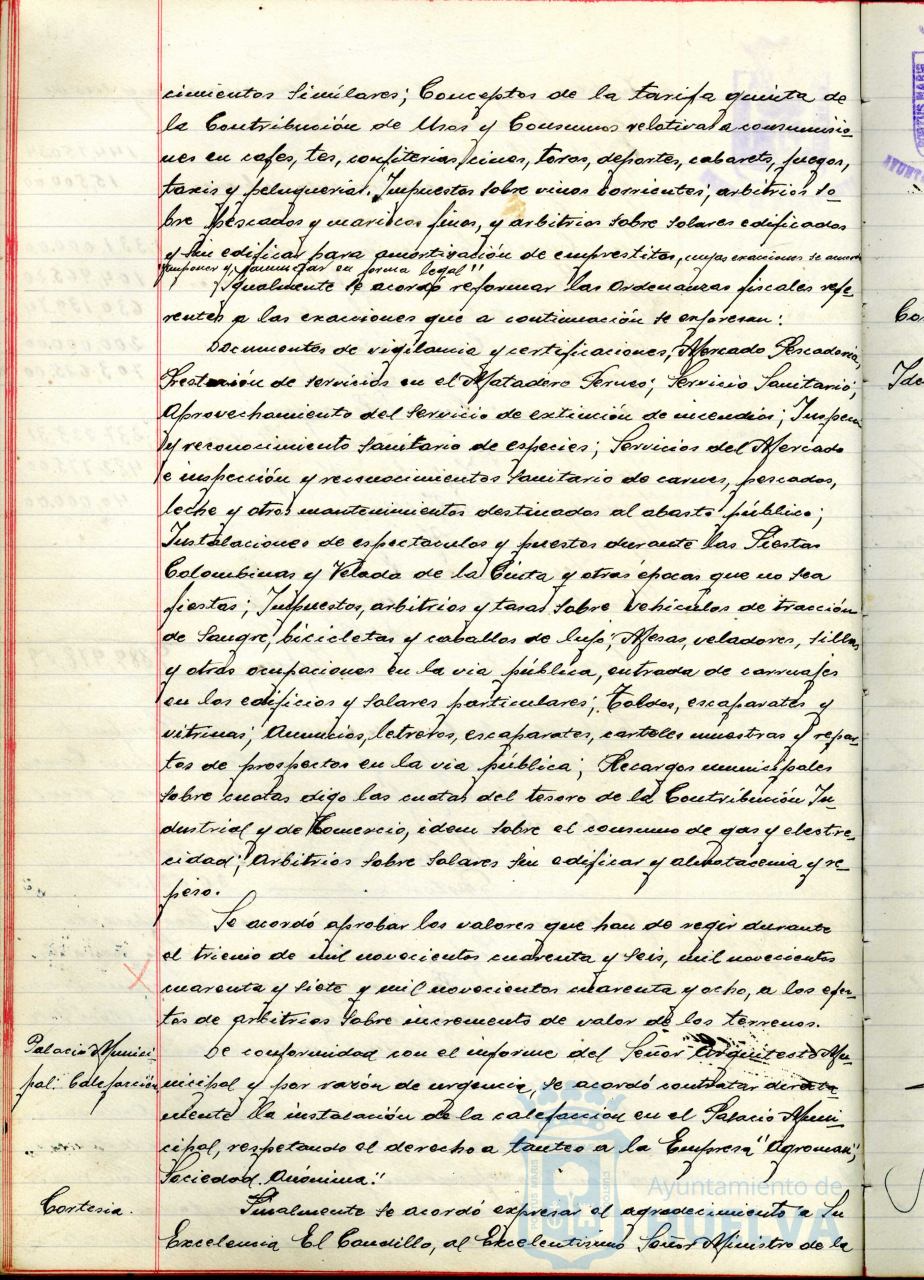 cimientos similares; Conceptos de la tarifa quinta de
la Contribución de Usos y Consumos relativas a consumisio-
nes en cafes, tes, confiterias, cines, toros, deportes, cabarets, juegos,
taxis y peluquerias. Impuestos sobre vinos corrientes; arbitrios so-
bre pescados y mariscos finos, y arbitrios sobre solares edificados
y sin edificar para amortización de emprestitos, cuyas exacciones se acuerda
"imponer y en forma legal"
Igualmente se acordó reformar las ordenanzas fiscales refe-
rentes a las exacciones que a continuación se expresan:
Documentos de vigilancia y certificaciones, Mercado Pescaderia,
Prestación de servicios en el Matadero Ferneo; Servicio Sanitario;
Aprovechamiento del servicio de extinción de incendios; Inspeccion
y reconocimiento sanitario de especies; Servicios del Mercado
e inspección y reconocimientos sanitario de carnes, pescados,
leche y otros mantenimientos destinados al abasto público;
Instalaciones de espectaculos y puestos durante las Fiestas
Colombinas y Velada de la Cinta y otras épocas que no sea
fiestas; Impuestos, arbitrios y tasas sobre vehículos de tracción
de sangre, bicicletas y caballos de lujo; Mesas, veladores, sillas
y otras ocupaciones en la via pública, entrada de carruajes
en los edificios y solares particulares; Toldos, escaparates y
vitrinas; Anuncios, letreros, escaparates, carteles muestras y repar-
tos de prospectos en la via pública; Recargos municipales
sobre cuotas digo las cuotas del tesoro de la Contribución In-
dustrial y de Comercio, idem sobre el consumo de gas y electri-
cidad; Arbitrios sobre solares sin edificar y almotacenia y re-
peso.
Se acordó aprobar los valores que han de regir durante
el trienio de mil novecientos cuarenta y seis, mil novecientos
cuarenta y siete y mil novecientos cuarenta y ocho, a los efec-
tos de arbitrios sobre incremento de valor de los terrenos.
Palacio Munici-
pal. Calefacción
De conformidad con el informe del Señor Arquitecto Mu-
nicipal y por razón de urgencia, se acordó contratar directa-
mente la instalación de la calefaccion en el Palacio Muni-
cipal, respetando el derecho a tanteo a la Empresa "Agroman",
Sociedad Anónima."
Cortesia.
Finalmente se acordó expresar el agradecimiento a Su
Excelencia El Caudillo, al Excelentisimo Señor Ministro de la
Ayuntamiento de
HUELVA